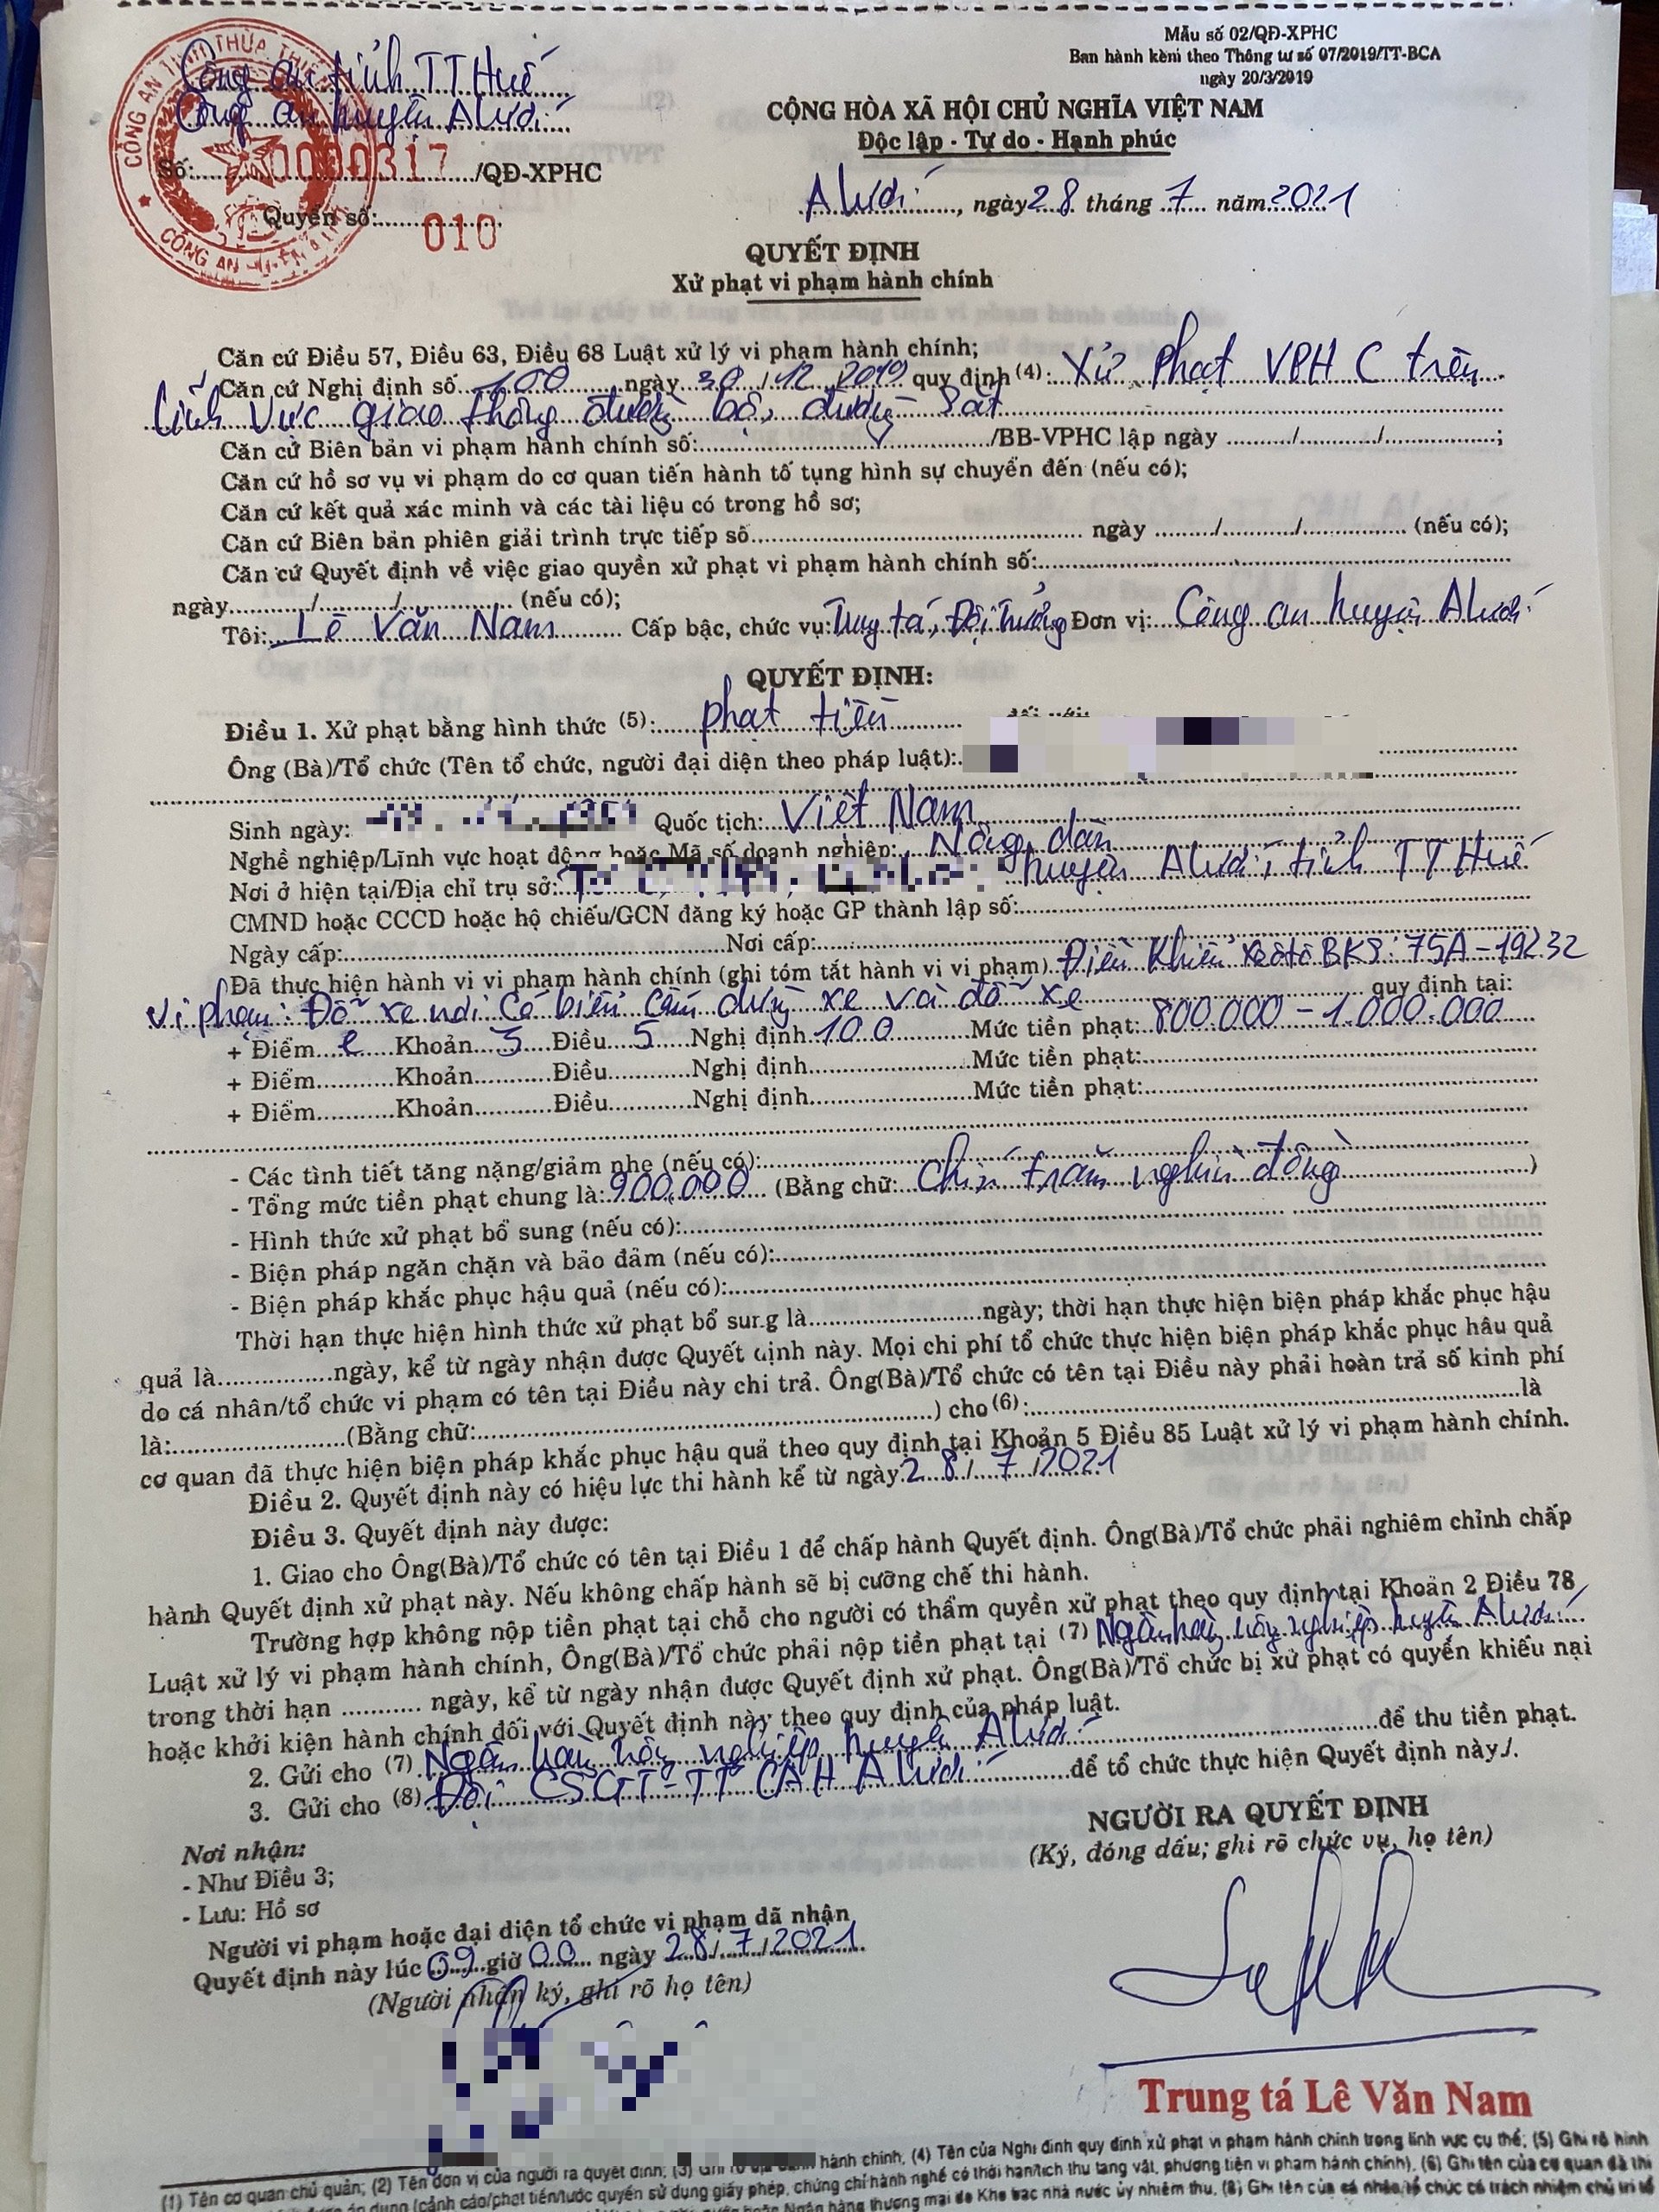 Mẫu số 02/QĐ-XPHC
Ban hành kèm theo Thông tư số 07/2019/TT-BCA
ngày 20/3/2019
Công an tỉnh TT Huế
Công an huyện A Lưới
CỘNG HÒA XÃ HỘI CHỦ NGHĨA VIỆT NAM
Độc lập - Tự do - Hạnh phúc
Số: 0000317 /QĐ-XPHC
Quyển số: 010
A Lưới, ngày 28 tháng 7 năm 2021
QUYẾT ĐỊNH
Xử phạt vi phạm hành chính
Căn cứ Điều 57, Điều 63, Điều 68 Luật xử lý vi phạm hành chính;
Căn cứ Nghị định số 100 ngày 30/12/2019 quy định (4): Xử phạt VPHC trên
lĩnh vực giao thông đường bộ, đường sắt
Căn cứ Biên bản vi phạm hành chính số:........../BB-VPHC lập ngày ......../......../........;
Căn cứ hồ sơ vụ vi phạm do cơ quan tiến hành tố tụng hình sự chuyển đến (nếu có);
Căn cứ kết quả xác minh và các tài liệu có trong hồ sơ;
Căn cứ Biên bản phiên giải trình trực tiếp số.......... ngày ......../......../........ (nếu có);
Căn cứ Quyết định về việc giao quyền xử phạt vi phạm hành chính số:..........
ngày......../......../........ (nếu có);
Tôi: Lê Văn Nam Cấp bậc, chức vụ: Trung tá, Đội trưởng Đơn vị: Công an huyện A Lưới
QUYẾT ĐỊNH:
Điều 1. Xử phạt bằng hình thức (5): phạt tiền đối với:
Ông (Bà)/Tổ chức (Tên tổ chức, người đại diện theo pháp luật):
Sinh ngày: Quốc tịch: Việt Nam
Nghề nghiệp/Lĩnh vực hoạt động hoặc Mã số doanh nghiệp: Nông dân
Nơi ở hiện tại/Địa chỉ trụ sở: huyện A Lưới, tỉnh TT Huế
CMND hoặc CCCD hoặc hộ chiếu/GCN đăng ký hoặc GP thành lập số:..........
Ngày cấp:..........Nơi cấp:..........
Đã thực hiện hành vi vi phạm hành chính (ghi tóm tắt hành vi vi phạm) Điều khiển xe ôtô BKS: 75A-19232
vi phạm: Đỗ xe nơi có biển cấm dừng xe và đỗ xe quy định tại:
+ Điểm e Khoản 3 Điều 5 Nghị định 100 Mức tiền phạt: 800.000 - 1.000.000
+ Điểm..........Khoản..........Điều..........Nghị định..........Mức tiền phạt:..........
+ Điểm..........Khoản..........Điều..........Nghị định..........Mức tiền phạt:..........
- Các tình tiết tăng nặng/giảm nhẹ (nếu có):..........
- Tổng mức tiền phạt chung là: 900.000 (Bằng chữ: Chín trăm nghìn đồng)
- Hình thức xử phạt bổ sung (nếu có):..........
- Biện pháp ngăn chặn và bảo đảm (nếu có):..........
- Biện pháp khắc phục hậu quả (nếu có):..........
Thời hạn thực hiện hình thức xử phạt bổ sung là..........ngày; thời hạn thực hiện biện pháp khắc phục hậu
quả là..........ngày, kể từ ngày nhận được Quyết định này. Mọi chi phí tổ chức thực hiện biện pháp khắc phục hậu quả
do cá nhân/tổ chức vi phạm có tên tại Điều này chi trả. Ông(Bà)/Tổ chức có tên tại Điều này phải hoàn trả số kinh phí
là:..........(Bằng chữ:..........) cho (6):..........là
cơ quan đã thực hiện biện pháp khắc phục hậu quả theo quy định tại Khoản 5 Điều 85 Luật xử lý vi phạm hành chính.
Điều 2. Quyết định này có hiệu lực thi hành kể từ ngày: 28/7/2021
Điều 3. Quyết định này được:
1. Giao cho Ông(Bà)/Tổ chức có tên tại Điều 1 để chấp hành Quyết định. Ông(Bà)/Tổ chức phải nghiêm chỉnh chấp
hành Quyết định xử phạt này. Nếu không chấp hành sẽ bị cưỡng chế thi hành.
Trường hợp không nộp tiền phạt tại chỗ cho người có thẩm quyền xử phạt theo quy định tại Khoản 2 Điều 78
Luật xử lý vi phạm hành chính, Ông(Bà)/Tổ chức phải nộp tiền phạt tại (7) Ngân hàng nông nghiệp huyện A Lưới
trong thời hạn .......... ngày, kể từ ngày nhận được Quyết định xử phạt. Ông(Bà)/Tổ chức bị xử phạt có quyền khiếu nại
hoặc khởi kiện hành chính đối với Quyết định này theo quy định của pháp luật.
2. Gửi cho (7) Ngân hàng nông nghiệp huyện A Lưới để thu tiền phạt.
3. Gửi cho (8) Đội CSGT-TT CAH A Lưới để tổ chức thực hiện Quyết định này./.
NGƯỜI RA QUYẾT ĐỊNH
(Ký, đóng dấu; ghi rõ chức vụ, họ tên)
Nơi nhận:
- Như Điều 3;
- Lưu: Hồ sơ
Người vi phạm hoặc đại diện tổ chức vi phạm đã nhận
Quyết định này lúc 09 giờ 00 ngày 28/7/2021
(Người nhận ký, ghi rõ họ tên)
Trung tá Lê Văn Nam
(1) Tên cơ quan chủ quản; (2) Tên đơn vị của người ra quyết định; (3) hành chính, (4) Tên của Nghị định quy định xử phạt vi phạm hành chính trong lĩnh vực cụ thể; (5) Ghi rõ hình
(cảnh cáo/phạt tiền/tước quyền sử dụng giấy phép, chứng chỉ hành nghề có thời hạn/tịch thu tang vật, phương tiện vi phạm hành chính). (6) Ghi tên của cơ quan đã thi